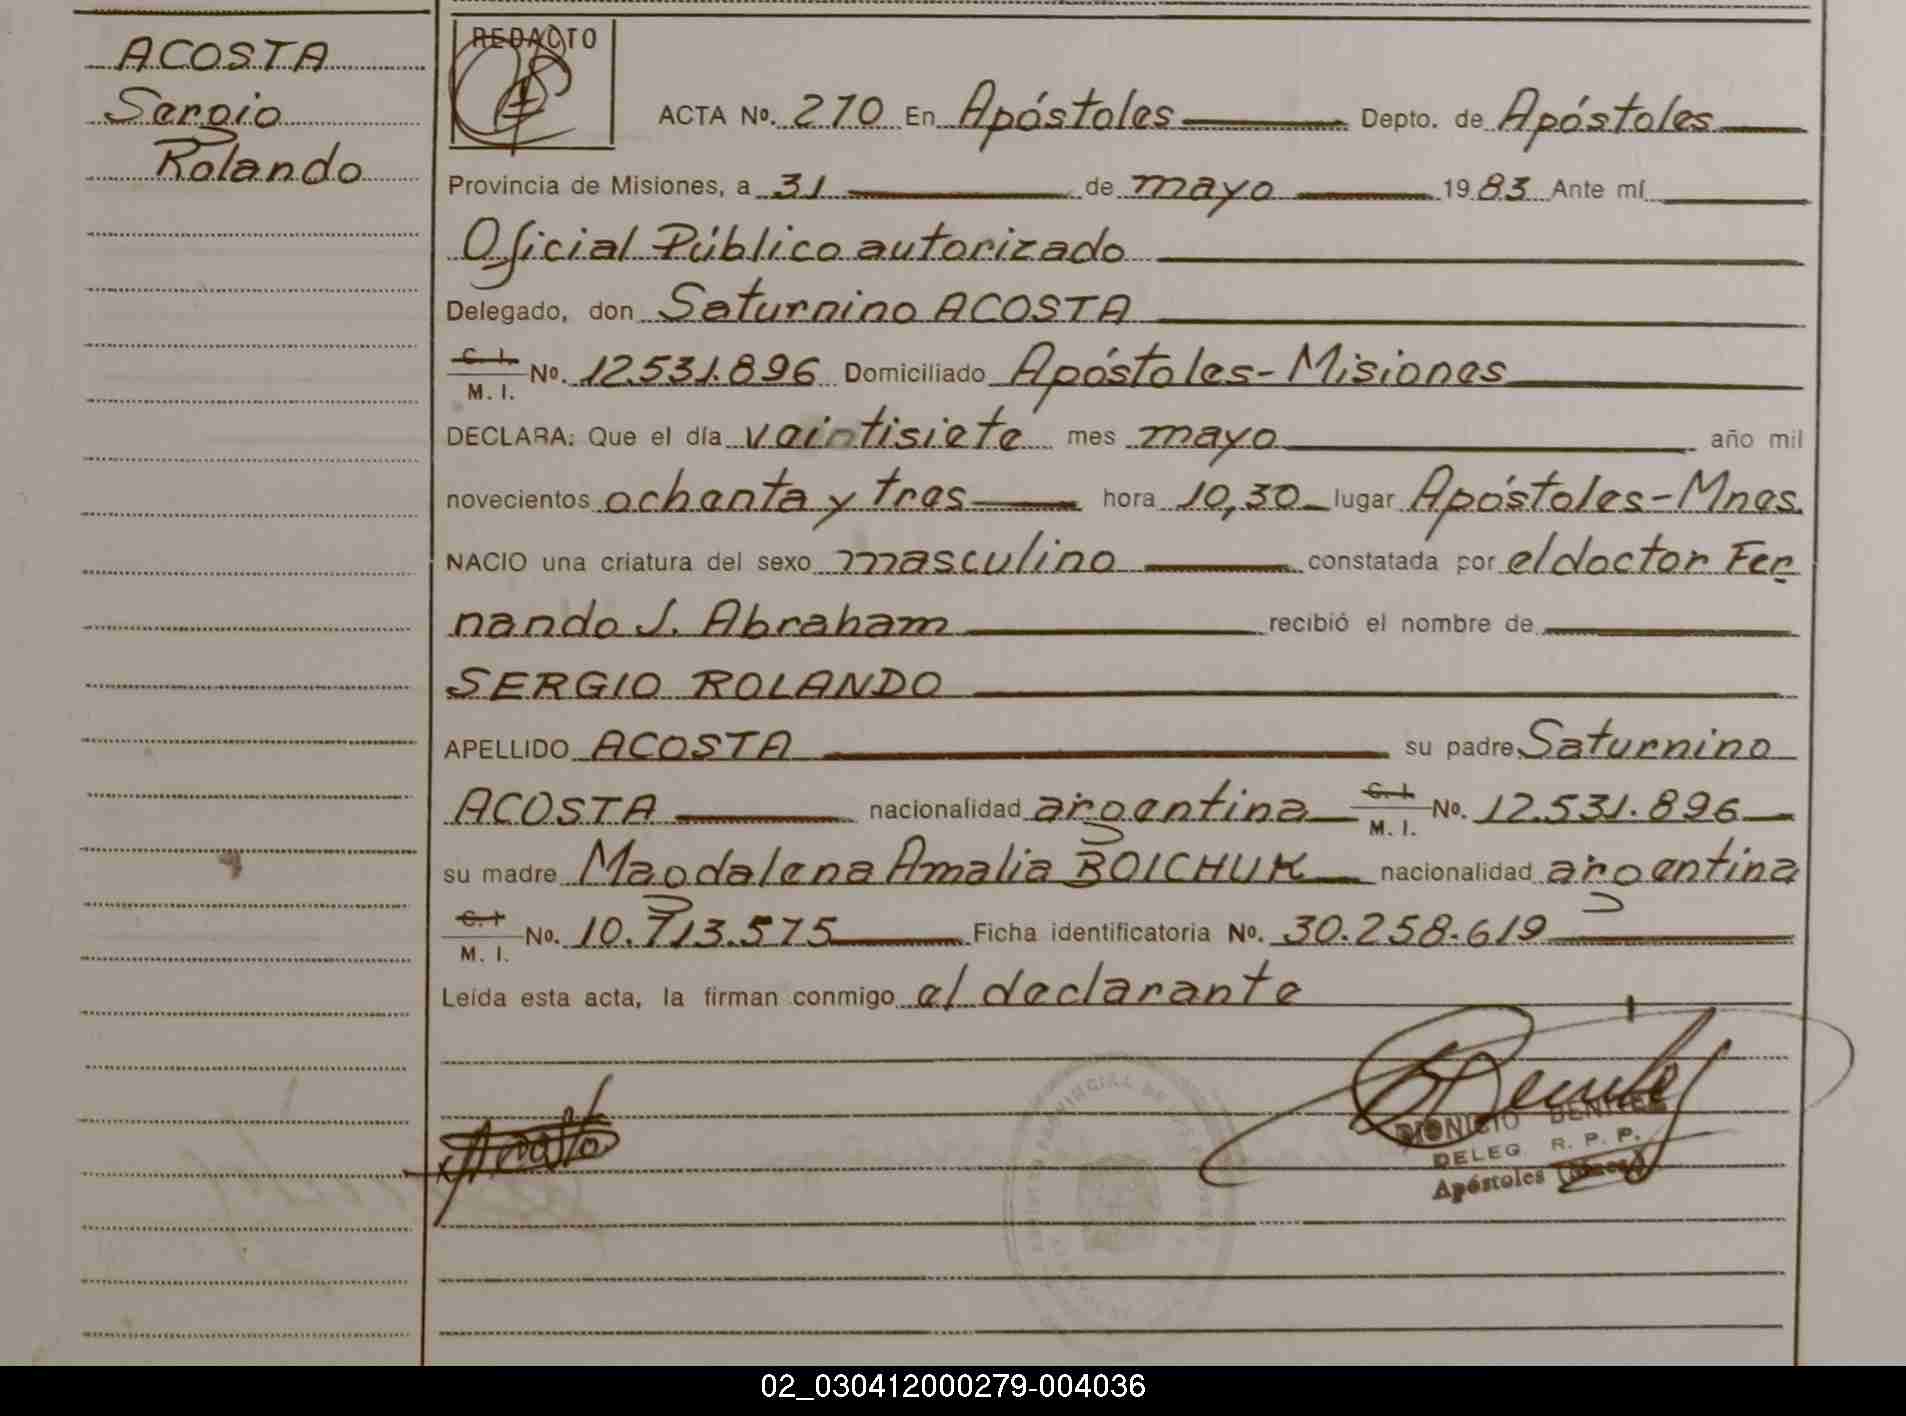 ACOSTA
Sergio
Rolando
REDACTO
ACTA No. 270 En Apóstoles Depto. de Apóstoles
Provincia de Misiones, a 31 de mayo 1983 Ante mí
Oficial Público autorizado
Delegado, don Saturnino ACOSTA
C. I.
M. I. No. 12.531.896 Domiciliado Apóstoles - Misiones
DECLARA: Que el día veintisiete mes mayo año mil
novecientos ochenta y tres hora 10,30 lugar Apóstoles - Mnes.
NACIO una criatura del sexo masculino constatada por el doctor Fer
nando J. Abraham recibió el nombre de
SERGIO ROLANDO
APELLIDO ACOSTA su padre Saturnino
ACOSTA nacionalidad argentina C. I. M. I. No. 12.531.896
su madre Magdalena Amalia BOICHUK nacionalidad argentina
C. I.
M. I. No. 10.713.575 Ficha identificatoria No. 30.258.619
Leída esta acta, la firman conmigo el declarante
DIONICIO BENITEZ
DELEG R. P. P.
Apóstoles (Mnes.)
02_030412000279-004036